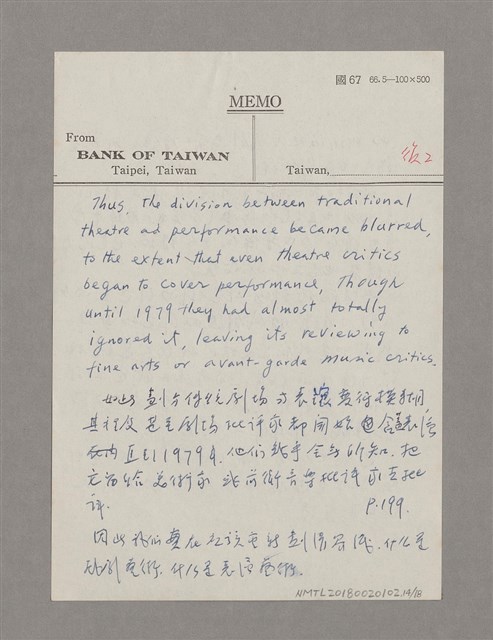 國 67 66.5—100×500
MEMO
From
BANK OF TAIWAN
Taipei, Taiwan
Taiwan,
後2
Thus, the division between traditional
theatre ad performance became blurred,
to the extent that even theatre critics
began to cover performance, Though
until 1979 they had almost totally
ignored it, leaving its reviewing to
fine arts or avant-garde music critics.
劃分傳統劇場與表演變得模糊,
其程度甚至劇場批評家都開始包含表演
直到1979年,他們幾乎全
美術家或前衛音樂批評家去批
評. P.199.
因此我們實在應該重新劃清界限,什么是
戲劇藝術,什么是表演藝術.
NMTL20180020102.14/18